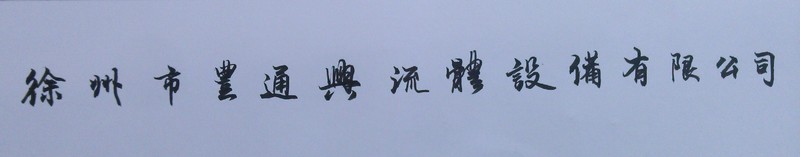 徐州市豐通興流體設備有限公司